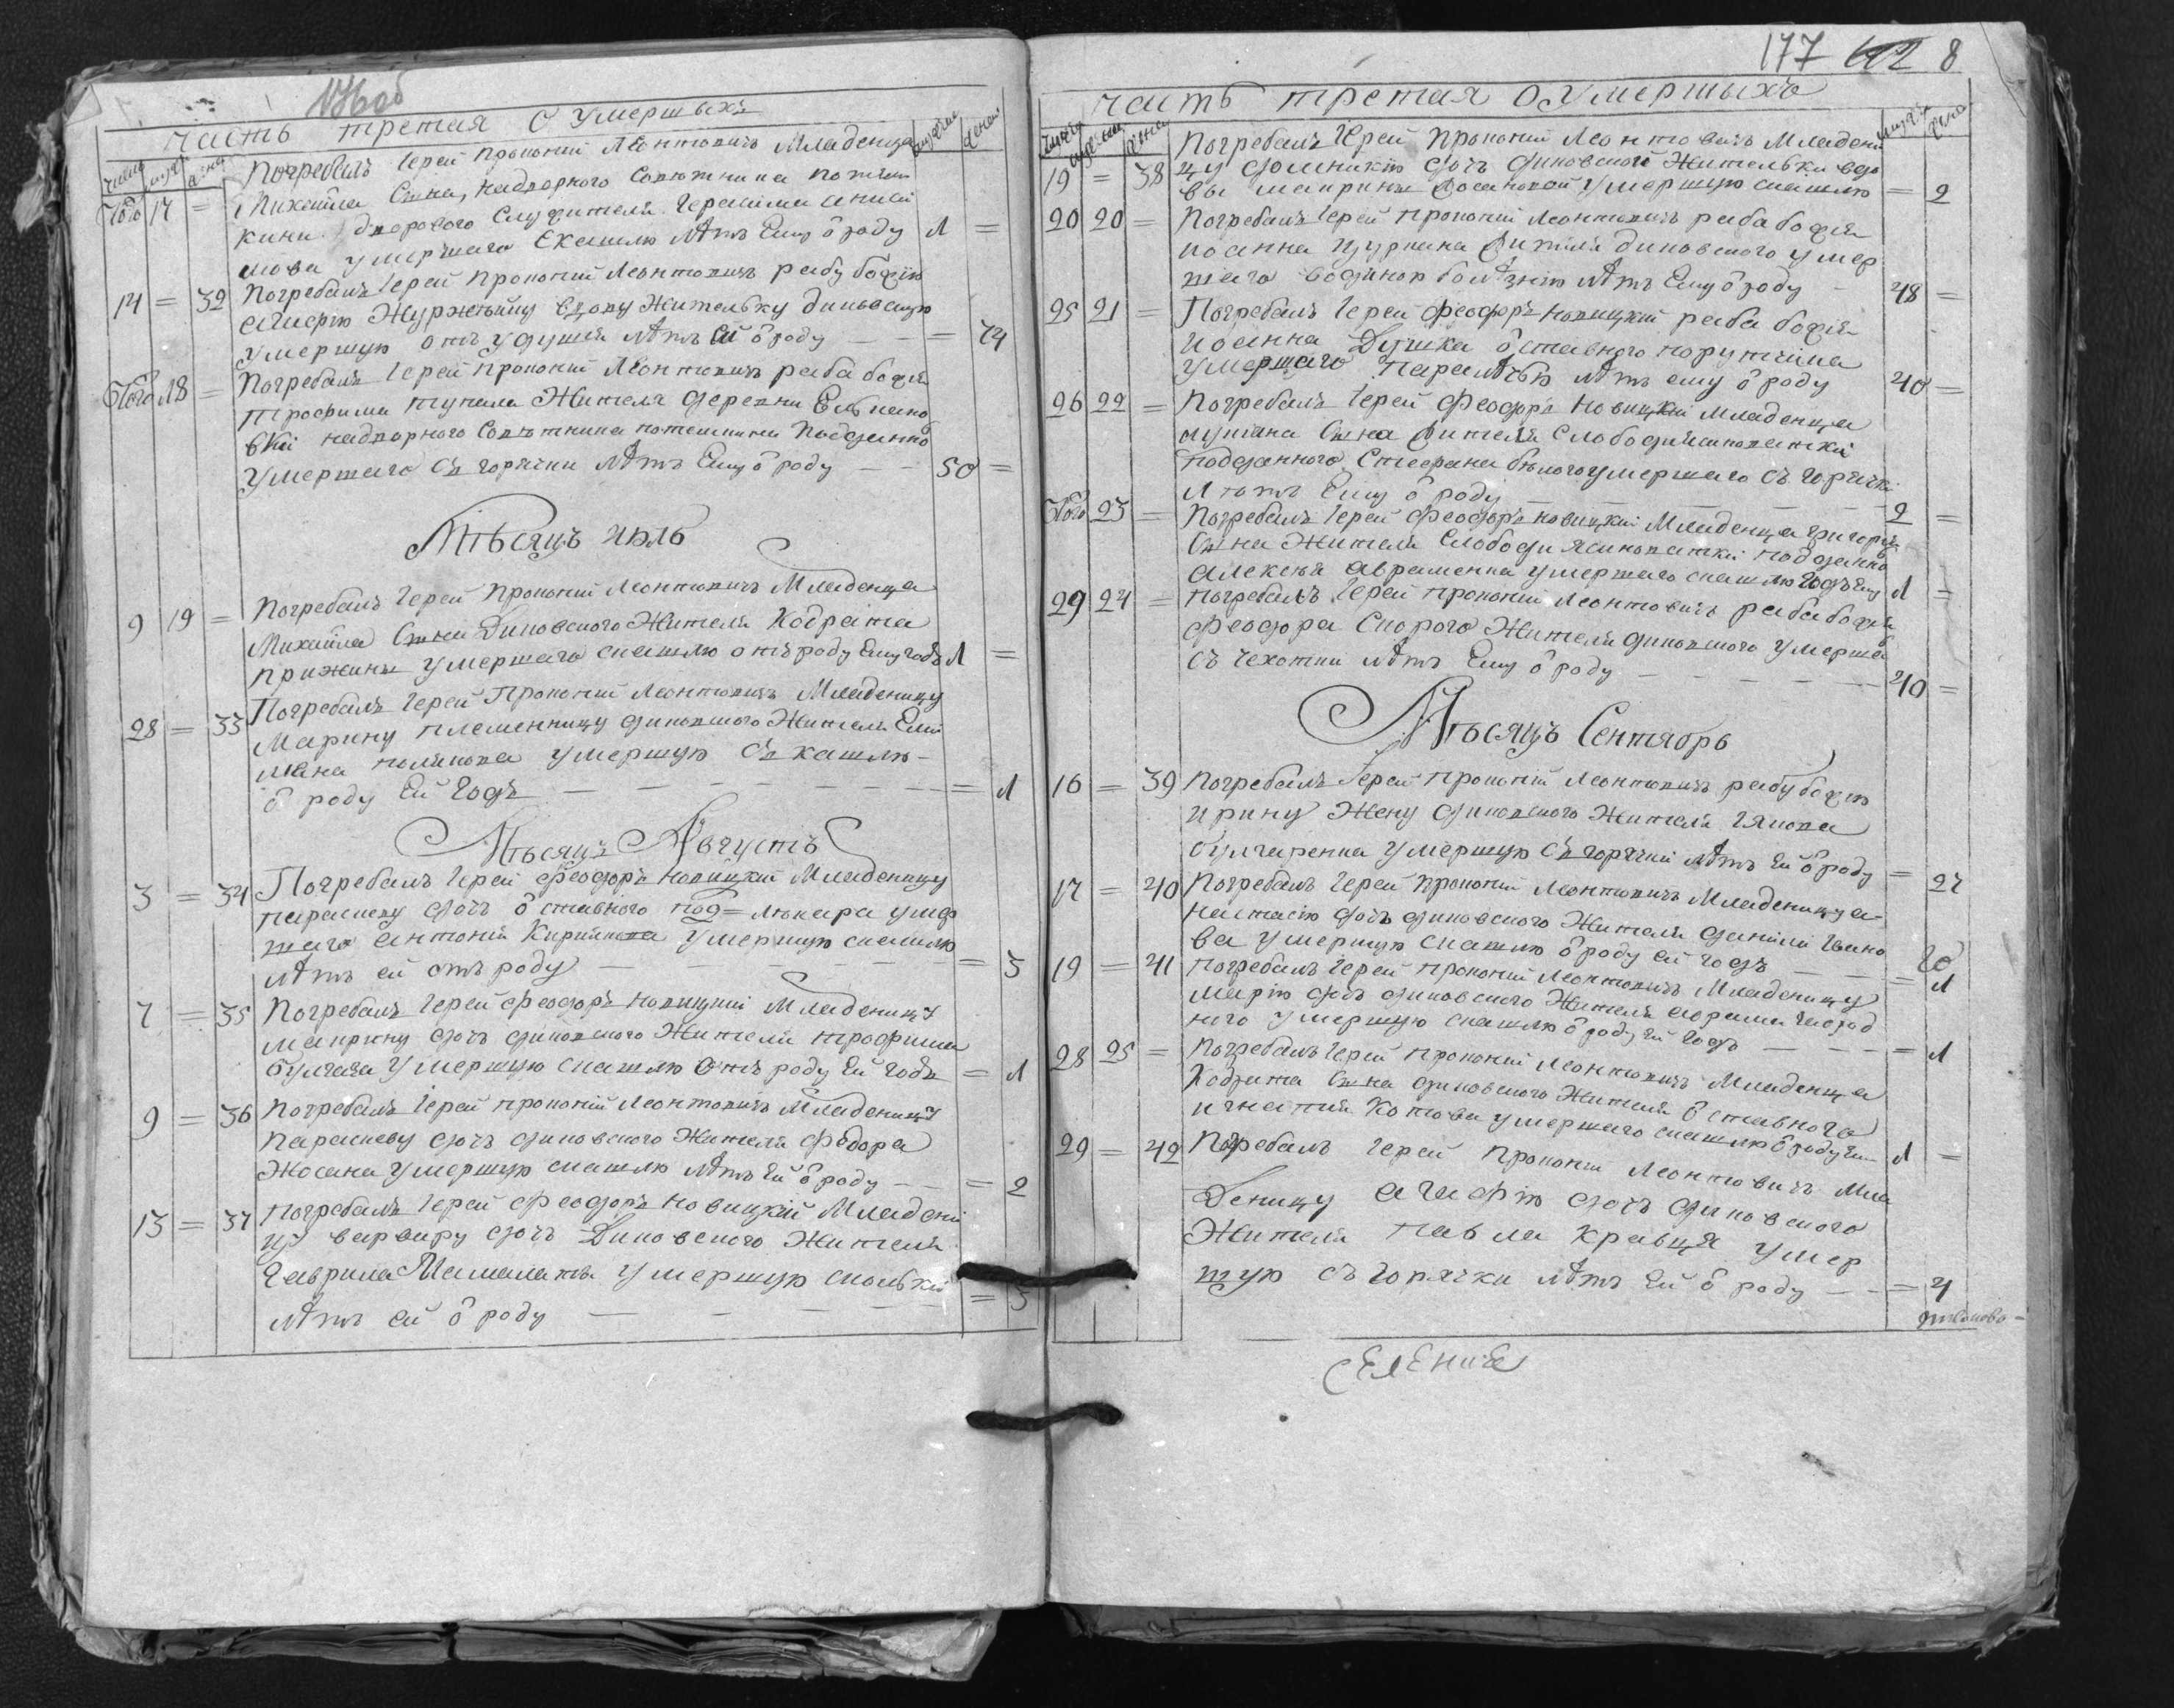 176об
часть третая О Умершыхъ
число мужес женс
Погребалъ Іерей Прокопій Леонтовичъ Младенца
Тогожъ 17 =
Михайла Сына, надворного Совютника потем
кина дворового Служителя Герасима аниси
мова умершаго Скашлю лѣтъ Ему ѿ роду 1 =
14 = 32 Погребалъ Іерей Прокопій Леонтовичъ рабу божію
вдову Жительку диковскую
умершую отъ удушя лѣтъ Ей ѿ роду — — = 74
Того 18 = Погребалъ Іерей Прокопій Леонтовичъ раба божія
трофима тупила Жителя деревни
вки надворного Совѣтника потемкина подданно
умершаго Съ горячки лѣтъ Ему ѿ роду — — 50 =
Мѣсяцъ июль
9 19 = Погребалъ Іерей Прокопій Леонтовичъ Младенца
Михайла Сына Диковского Жителя Кодрата
прижины умершаго скашлю отъ роду Ему годъ 1 =
28 = 33 Погребалъ Іерей Прокопій Леонтовичъ Младеницу
Марину племенницу диковского Жителя Еми
лиана полякова умершую Съ кашлю
ѿ роду Ей Годъ — — — — — — = 1
Мѣсяцъ Августъ
3 = 34 Погребалъ Іерей Феодоръ Новицкій Младеницу
параскеву дочъ ѿставного под= лекара умер
шаго антонія умершую скашлю
лѣтъ ей отъ роду — — — — — = 3
7 = 35 Погребалъ Іерей Феодоръ Новицкій Младеницу
макрину дочъ диковского Жителя трофима
булгача умершую скашлю отъ роду Ей Годъ = 1
9 = 36 Погребалъ Іерей прокопій Леонтовичъ Младеницу
параскеву дочъ диковского Жителя Федора
Жосана умершую скашлю лѣтъ Ей ѿ роду — — = 2
13 = 37 Погребалъ Іерей Феодоръ Новицкій Младени
цу варвару дочъ Диковского Жителя
Гаврила Мамалаты умершую
лѣтъ ей ѿ роду — — — — — = 3
177 8
часть третая О Умершыхъ
Погребалъ Іерей Прокопій Леонтовичъ Младени
19 = 38 цу домникію дочъ диковского Жительки вдо
вы макрины умершую скашлю = 2
20 20 = Погребалъ Іерей прокопій Леонтовичъ раба божія
иоанна Жителя диковского умер
шаго водяною болѣзнію лѣтъ Ему ѿ роду — 48 =
25 21 = Погребалъ Іерей Феодоръ Новицкій раба божія
иоанна Душка ѿставного порутчика
умершаго Паралѣчью лѣтъ ему ѿ роду 40 =
26 22 = Погребалъ Іерей Феодоръ Новицкій Младенца
лукіана Сына Жителя Слободи
подданного Стефана бѣлого умершаго съ горячки
лѣтъ Ему ѿ роду — — — — 2 =
Того 23 = Погребалъ Іерей Феодоръ Новицкій Младенца григорія
Сына Жителя Слободи Ясиноватки подданно
алексѣя авраменка умершаго скашлю годъ Ему 1 =
29 24 = Погребалъ Іерей Прокопій Леонтовичъ раба божія
Феодора Скорого Жителя диковского умерша
съ чехотки лѣтъ Ему ѿ роду — — — — — 40 =
Мѣсяцъ Сентябрь
16 = 39 Погребалъ Іерей прокопій Леонтовичъ рабу божію
ирину Жену диковского Жителя
булгаренка умершую Съ горячки лѣтъ Ей ѿ роду = 27
17 = 40 Погребалъ Іерей прокопій Леонтовичъ Младеницу а
настасію дочъ диковского Жителя даніила Ивано
ва умершую скашлю ѿ роду ей годъ — — = 1
19 = 41 Погребалъ Іерей прокопій Леонтовичъ Младеницу
марію дочъ диковского Жителя
ного умершую скашлю ѿ роду Ей Годъ — — = 1
28 25 = Погребалъ Іерей Прокопій Леонтовичъ Младенца
Кодрата Сына диковского Жителя ѿставного
игнатия Котова умершаго скашлю ѿ роду 1 =
29 = 42 Погребалъ Іерей прокопій Леонтовичъ Мла
деницу агафію дочъ диковского
Жителя павла кравця умер
шую съ горячки лѣтъ Ей ѿ роду — — = 4